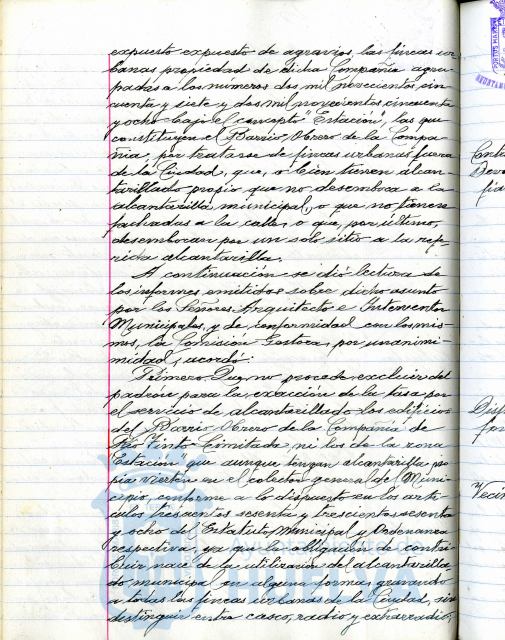 expuesto expuesto de agravios, las fincas ur-
banas propiedad de dicha Compañia agru-
padas a los numeros dos mil novecientos cin-
cuenta y siete y dos mil novecientos cincuenta
y ocho bajo el concepto "Estación", las que
constituyen el Barrio Obrero de la Compa-
ñia, por tratarse de fincas urbanas fuera
de la Ciudad, que, o bien tienen alcan-
tarillado propio que no desemboca a la
alcantarilla municipal, o que no tienen
fachadas a la calle, o que, por último,
desembocan por un solo sitio a la refe-
rida alcantarilla.
A continuación se dió lectura de
los informes emitidos sobre dicho asunto
por los Señores Arquitecto e Interventor
Municipales, y de conformidad con los mis-
mos, la Comision Gestora, por unanimi-
midad, acordó:
Primero. Que no procede excluir del
padrón para la exacción de la tasa por
el servicio de alcantarillado los edificios
del Barrio Obrero de la Compañia de
Rio Tinto Limitada, ni los de la zona
"Estación" que aunque tengan alcantarilla pro-
pia vierten en el colector general de Muni-
cipio, conforme a lo dispuesto en los artí-
culos trescientos sesenta y trescientos sesenta
y ocho del Estatuto Municipal y Ordenanza
respectiva, ya que la obligación de contri-
buir nace de la utilización del alcantarilla-
do municipal en alguna forma, gravando
a todas las fincas urbanas de la Ciudad, sin
distinguir entre casco, radio y extrarradio,